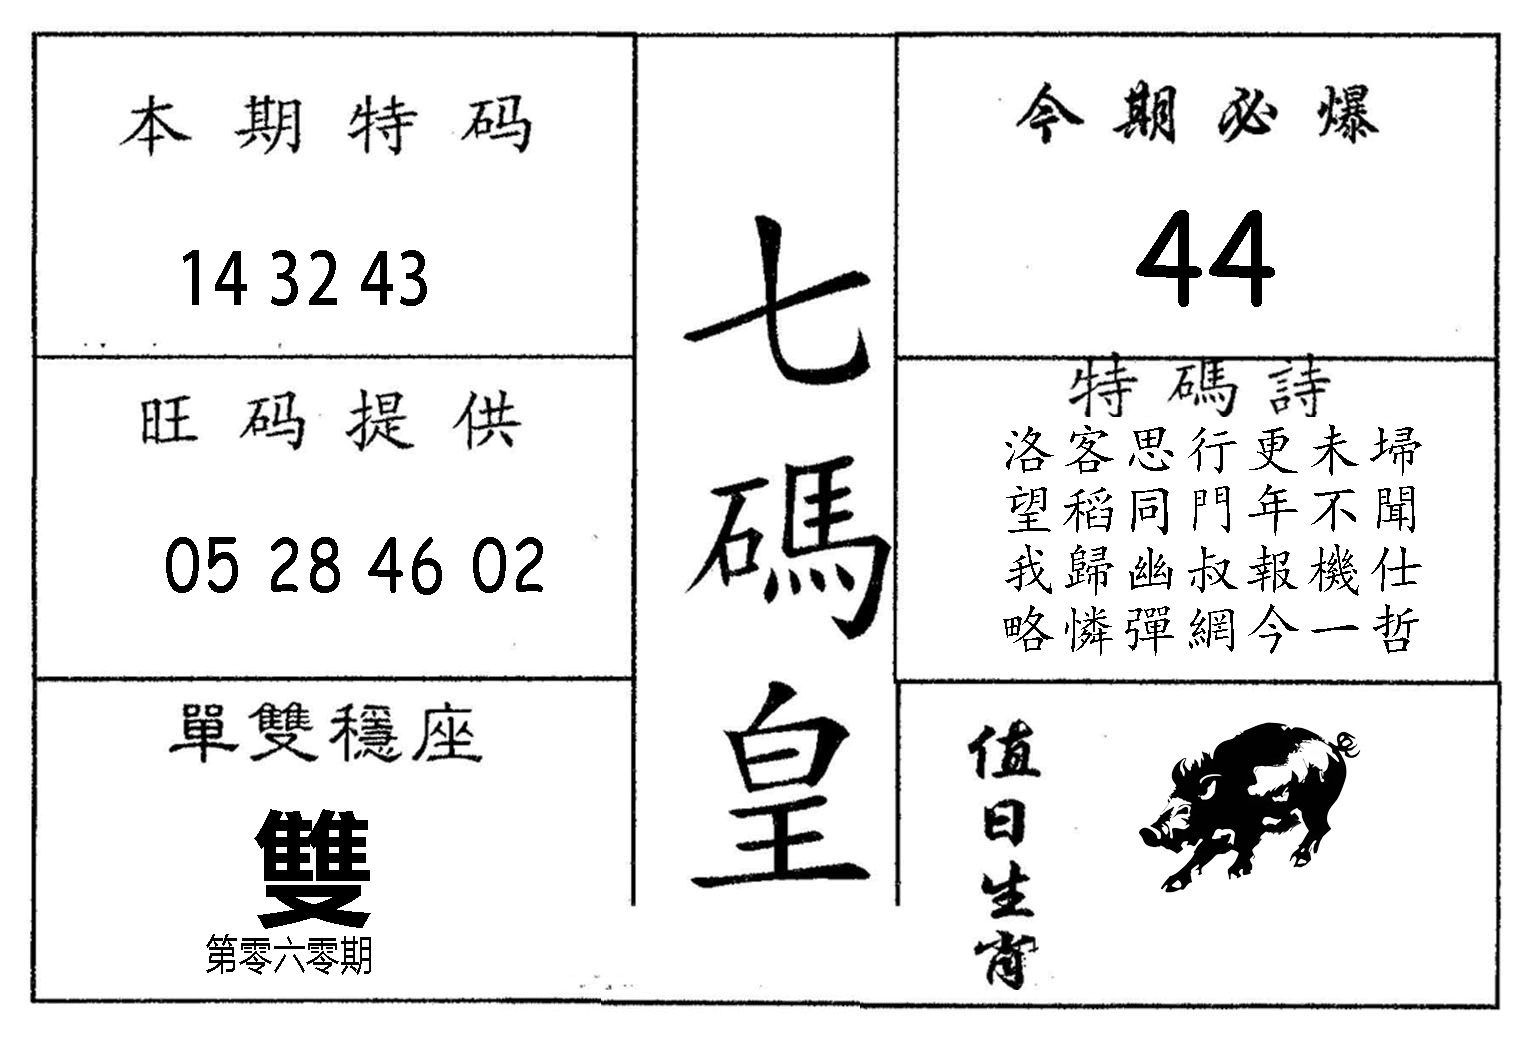 本期特码
14 32 43
旺码提供
05 28 46 02
單雙穩座
雙
第零六零期
七碼皇
今期必爆
44
特碼詩
洛客思行更未埽
望稻同門年不聞
我歸幽叔報機仕
略憐彈網今一哲
值日生肖